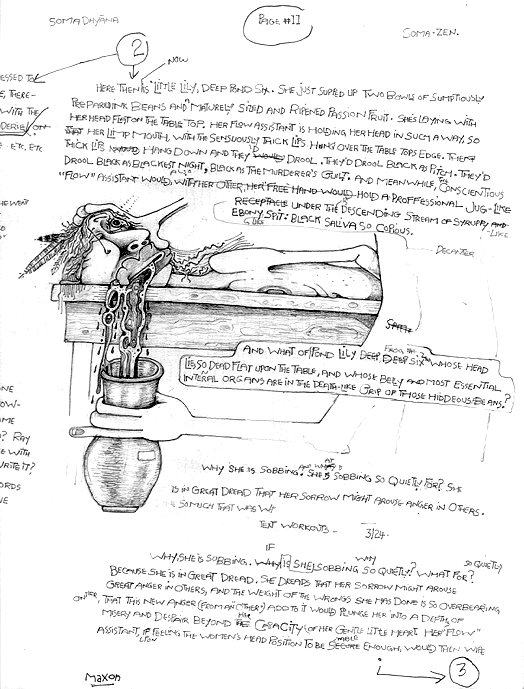 SOMA DHYANA
PAGE #11
SOMA-ZEN.
2
NOW
HERE THEN IS "LITTLE LILY, DEEP POND SIX. SHE JUST SUPPED UP TWO BOWLS OF SUMPTIOUSLY
PREPARED INK BEANS AND A MATURELY SIZED AND RIPENED PASSION FRUIT. SHE'S LAYING WITH
HER HEAD FLAT ON THE TABLE TOP. HER FLOW ASSISTANT IS HOLDING HER HEAD IN SUCH A WAY, SO
THAT HER LIMP MOUTH, WITH THE SENSUOUSLY THICK LIPS HANG OVER THE TABLE TOPS EDGE. THEM
THICK LIPS WOULD HANG DOWN AND THEY WOULD DROOL. THEY'D DROOL BLACK AS PITCH. THEY'D
DROOL BLACK AS BLACKEST NIGHT, BLACK AS THE MURDERER'S GUILT. AND MEANWHILE, THE CONSCIENTIOUS
"FLOW" ASSISTANT WOULD ALSO WITH HER OTHER, HER FREE HAND WOULD HOLD A PROFFESSIONAL JUG-LIKE
RECEPTACLE UNDER THE DESCENDING STREAM OF SYRUPY AND
-LIKE
EBONY SPIT: BLACK SALIVA SO COPIOUS.
DECANTER
AND WHAT OF POND LILY DEEP, DEEP SIX WHOSE HEAD
LIES SO DEAD FLAT UPON THE TABLE, AND WHOSE BELLY AND MOST ESSENTIAL
INTERNAL ORGANS ARE IN THE DEATH-LIKE GRIP OF THOSE HIDDEOUS BEANS?
WHY SHE IS SOBBING. AND WHAT IS SHE SOBBING SO QUIETLY FOR? SHE
IS IN GREAT DREAD THAT HER SORROW MIGHT AROUSE ANGER IN OTHERS.
SO MUCH THAT WAS
TEXT WORKOUTS - 3/24-
IF WHY SO QUIETLY
WHY, SHE IS SOBBING. WHY IS SHE SOBBING SO QUIETLY? WHAT FOR?
BECAUSE SHE IS IN GREAT DREAD. SHE DREADS THAT HER SORROW MIGHT AROUSE
GREAT ANGER IN OTHERS, AND THE WEIGHT OF THE WRONGS SHE HAS DONE IS SO OVERBEARING
THAT THIS NEW ANGER (FROM ANOTHER) ADD TO IT WOULD PLUNGE HER INTO A DEPTHS OF
MISERY AND DESPAIR BEYOND THE CAPACITY (OF HER GENTLE LITTLE HEART. HER "FLOW"
ASSISTANT, IF FEELING THE WOMEN'S HEAD POSITION TO BE SECURE ENOUGH, WOULD THEN WIPE
MAXON
3